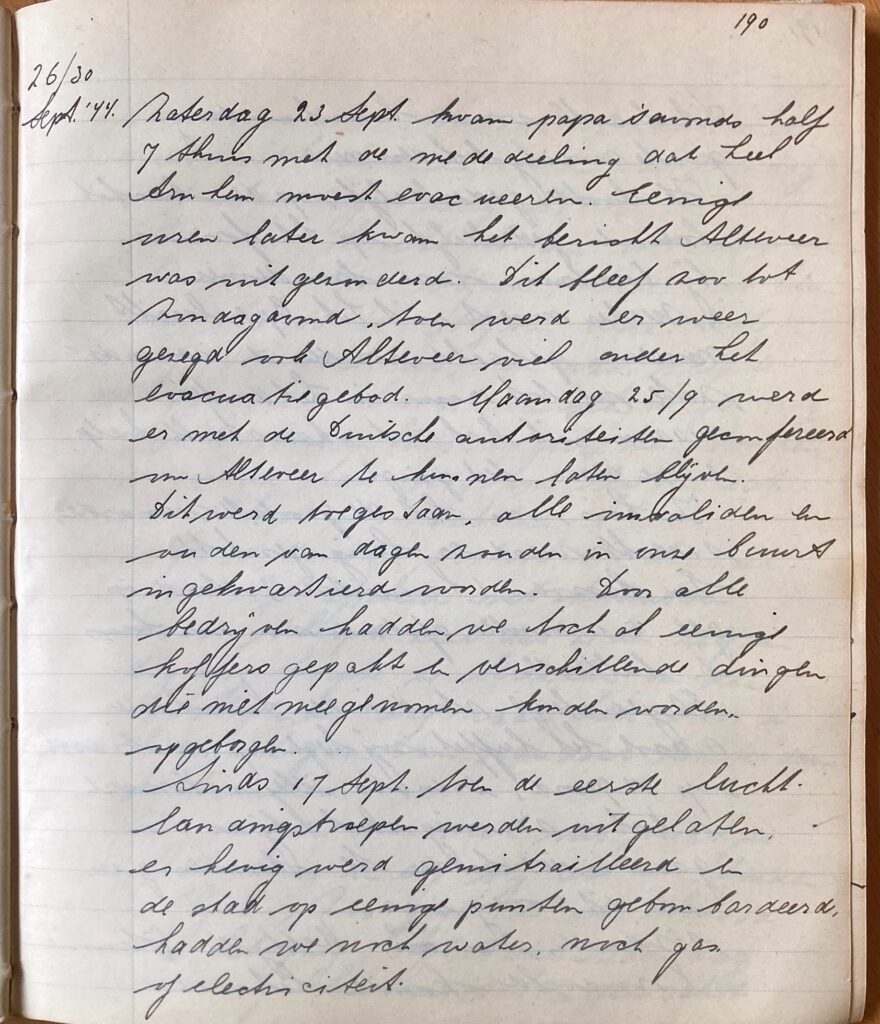 190
26/30
Sept. '44.
Zaterdag 23 Sept. kwam papa 's avonds half
7 thuis met de mededeeling dat heel
Arnhem moest evacueeren. Eenige
uren later kwam het bericht Alteveer
was uitgezonderd. Dit bleef zoo tot
Zondagavond, toen werd er weer
gezegd ook Alteveer viel onder het
evacuatiegebod. Maandag 25/9 werd
er met de Duitsche autoriteiten geconfereerd
om Alteveer te kunnen laten blijven.
Dit werd toegestaan, alle invaliden en
ouden van dagen zouden in onze buurt
ingekwartierd worden. Door alle
bedrijven hadden we toch al eenige
koffers gepakt en verschillende dingen
die niet meegenomen konden worden..
opgeborgen.
Sinds 17 Sept. toen de eerste lucht-
landingstroepen werden uitgelaten,
er hevig werd gemitrailleerd en
de stad op eenige punten gebombardeerd,
hadden we noch water, noch gas
of electriciteit.